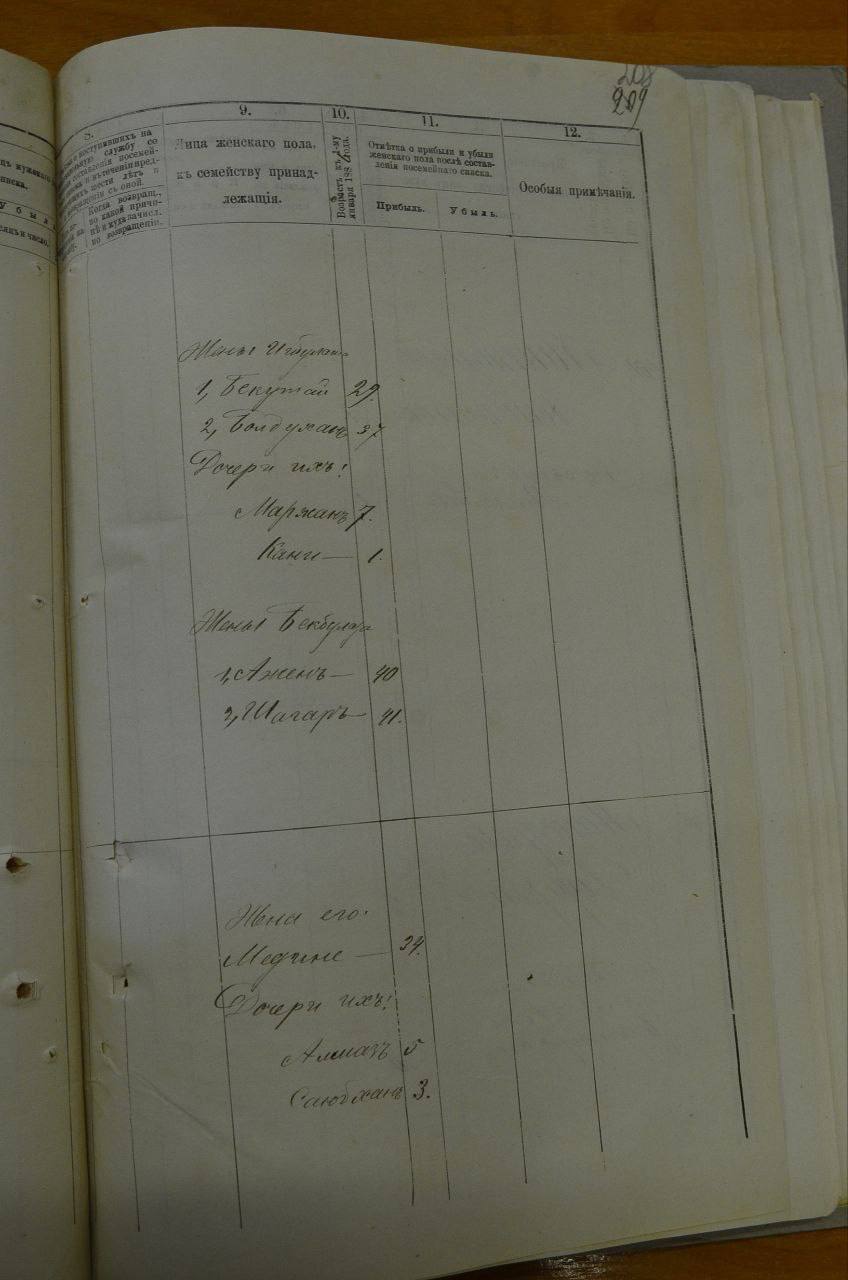 208
209
8.
9.
10.
11.
12.
поступившихъ на
службу со
составленія посемей-
и въ теченіи пред-
шести лѣтъ и
возвращеніи съ оной.
Когда возвращ.,
по какой причи-
нѣ и куда зачисл.
по возвращеніи.
Убыль
мѣсяцъ и число.
Лица женскаго пола,
къ семейству принад-
лежащія.
Возрастъ къ 1-му
января 188 года.
Отмѣтка о прибыли и убыли
женскаго пола послѣ состав-
ленія посемейнаго списка.
Прибыль.
Убыль.
Особыя примѣчанія.
Жены Игбулата
1, Бекутай 29.
2, Болдуханъ 37
Дочери ихъ:
Маржанъ 7.
Кани — 1.
Жены Бекбулата
1, Аженъ — 40
2, Шагаръ — 41.
Жена его:
Медине — 24.
Дочери ихъ:
Алмазъ 5
Саюбханъ 3.